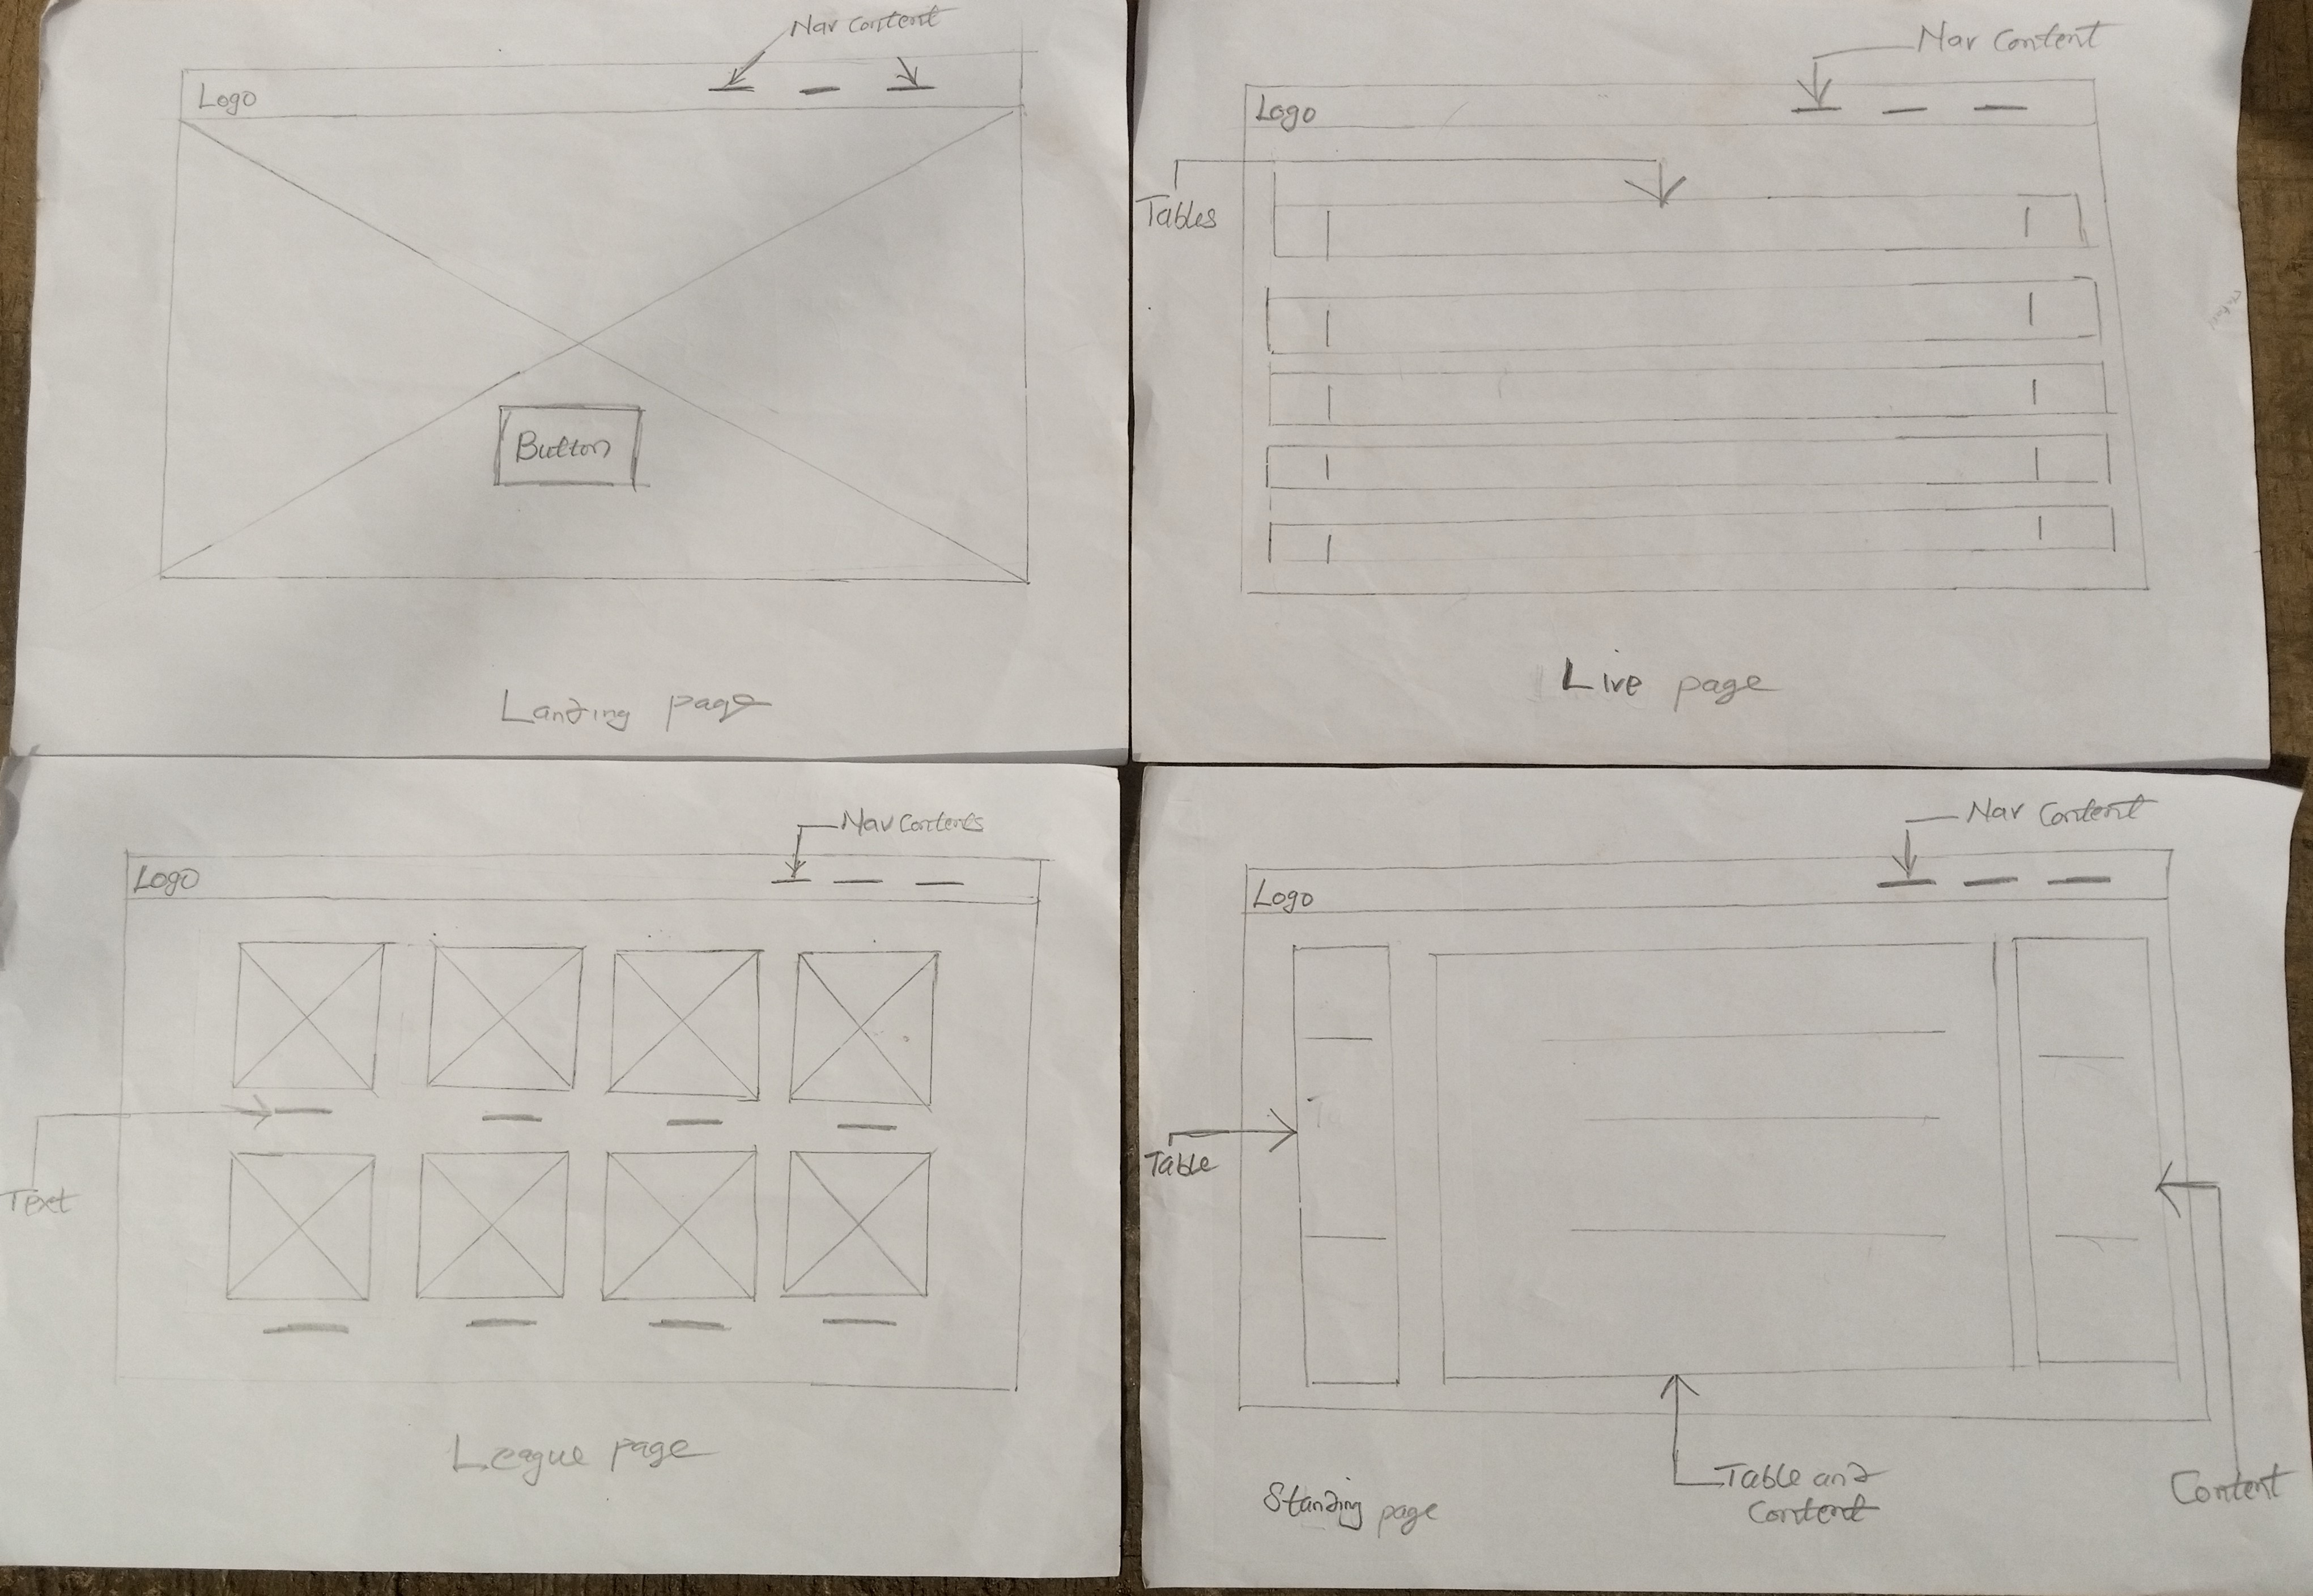 Nav Content
Logo
Button
Landing page
Nav Content
Logo
Tables
Live page
Nav Contents
Logo
Text
League page
Nav Content
Logo
Table
Table and
Content
Content
Standing page